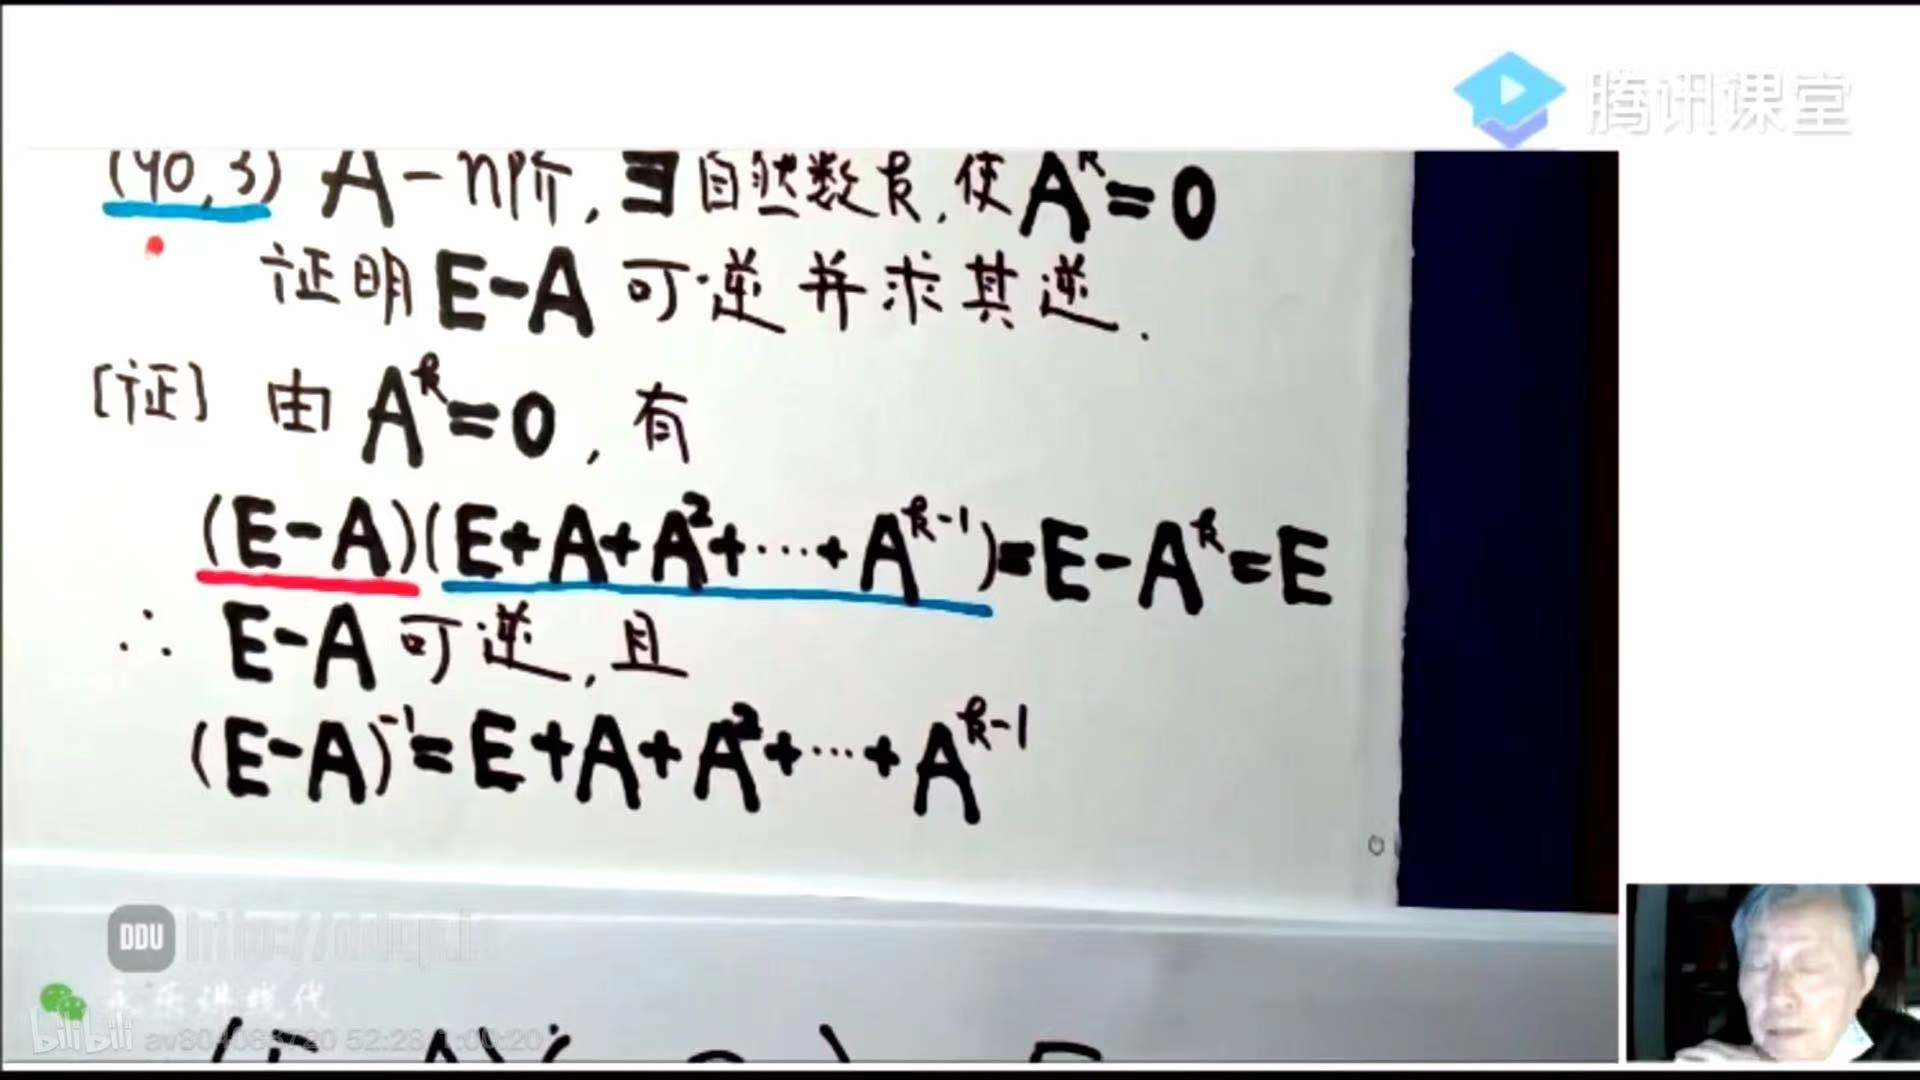 腾讯课堂
(40,3) A-n阶,∃自然数k,使A^k=0
证明E-A可逆并求其逆.
[证] 由A^k=0,有
(E-A)(E+A+A²+⋯+A^{k-1})=E-A^k=E
∴ E-A可逆,且
(E-A)^{-1}=E+A+A²+⋯+A^{k-1}
DDU
永乐讲线代
bilibili
52:28